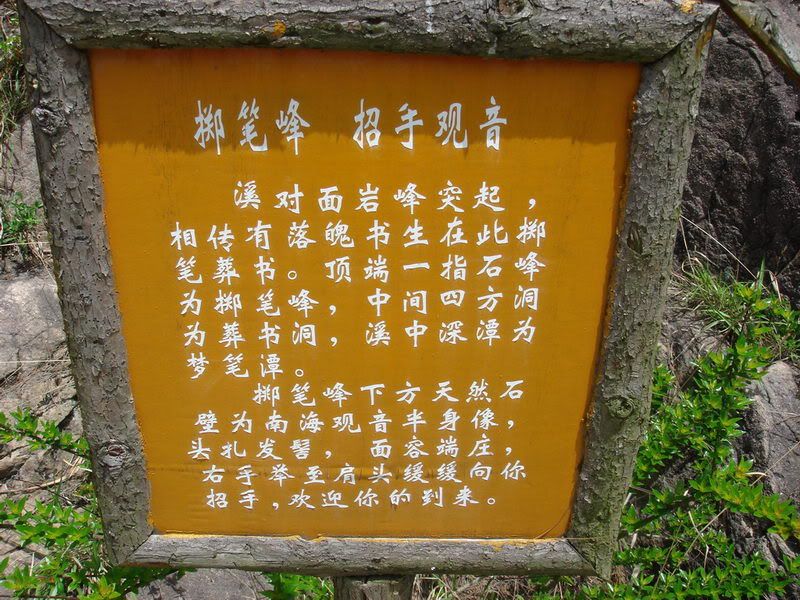 掷笔峰 招手观音
溪对面岩峰突起，
相传有落魄书生在此掷
笔葬书。顶端一指石峰
为掷笔峰，中间四方洞
为葬书洞，溪中深潭为
梦笔潭。
掷笔峰下方天然石
壁为南海观音半身像，
头扎发髻，面容端庄，
右手举至肩头缓缓向你
招手，欢迎你的到来。